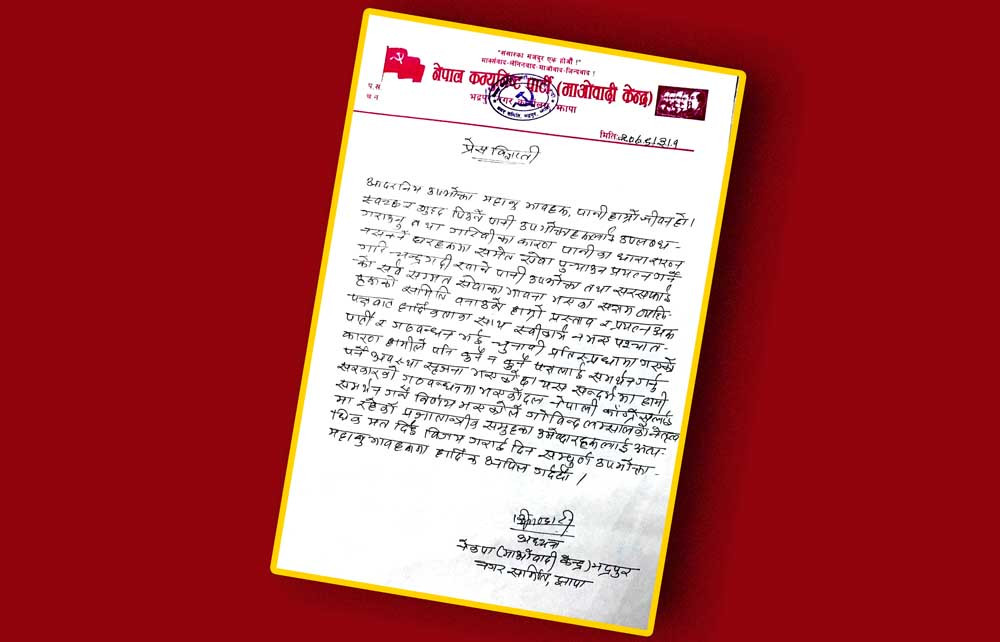 "संसारका मजदुर एक होऔं !"
मार्क्सवाद-लेनिनवाद-माओवाद-जिन्दावाद !
नेपाल कम्युनिष्ट पार्टी (माओवादी केन्द्र)
भद्रपुर नगर कार्यालय, झापा
प.स
च.न
मिति:
प्रेस विज्ञप्ती
आदरनिय उपभोक्ता महानुभावहरू, पानी हाम्रो जीवन हो।
स्वच्छ र शुद्ध पिउने पानी उपभोक्ताहरूलाई उपलब्ध
गराउनु तथा गरिवीका कारण पानीका धारा जडान
नसक्ने घरहरूमा समेत सेवा पुर्‍याउन प्रयत्न गर्ने
गरि चन्द्रगढी खाने पानी उपभोक्ता तथा सरसफाई
को सर्व सम्मत सेवाका भावना भएका सक्षम व्यक्ति
हरूको समिति बनाउने हाम्रो प्रस्ताव र प्रयत्न अरू
पक्षबाट हार्दिकताका साथ स्वीकार्य न भए पश्चात
पार्टी र गठबन्धन भई चुनावी प्रतिस्पर्धामा गएको
कारण हामीले पनि कुनै न कुनै पक्षलाई समर्थन गर्नु
पर्ने अवस्था सृजना भएको छ। यस सन्दर्भमा हामी
सरकारको गठबन्धनमा भएको दल नेपाली काँग्रेसलाई
समर्थन गर्ने निर्णय भएकोले गोविन्द लम्सालको नेतृत्व
मा रहेको प्रजातान्त्रीक समुहका उमेद्वारहरूलाई अत्या-
धिक मत दिई विजय गराई दिन सम्पुर्ण उपभोक्ता
महानुभावहरूमा हार्दिक अपिल गर्दछौं।
अध्यक्ष
नेकपा (माओवादी केन्द्र) भद्रपुर
नगर समिति, झापा